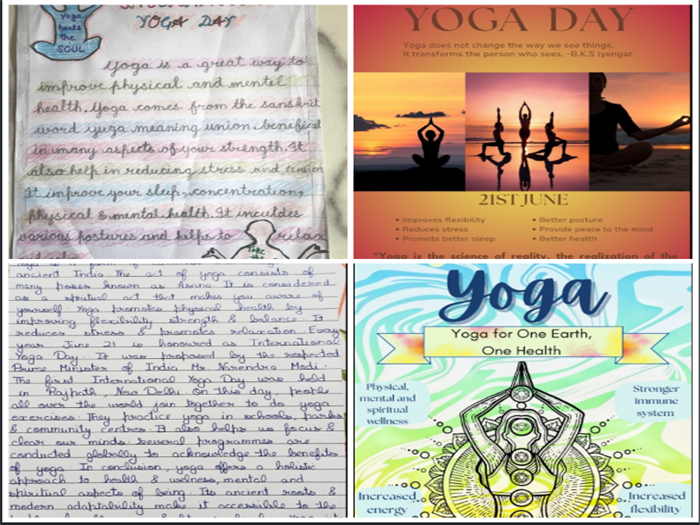 Yoga
heals
the
SOUL
YOGA DAY
Yoga is a great way to
improve physical and mental
health. Yoga comes from the sanskrit
word yuga meaning union, benefical
in many aspects of your strength. It
also help in reducing stress and tension
It improve your sleep, concentration,
physical & mental health. It inculdes
various postures and helps to relax
YOGA DAY
Yoga does not change the way we see things,
it transforms the person who sees. -B.K.S Iyengar
21ST JUNE
• Improves flexibility
• Reduces stress
• Promote better sleep
• Better posture
• Provide peace to the mind
• Better health
"Yoga is the science of reality, the realization of the
ancient India The act of yoga consists of
many poses known as Asana It is considered
as a spritual act that makes you aware of
yourself Yoga promotes physical health by
improving flexibility, strength & balance. It
reduces stress & promotes relaxation Every
year June 21 is honoured as International
Yoga Day. It was proposed by the respected
Prime Minister of India Mr Narendra Modi.
The first International Yoga Day was held
in Rajpath, New Delhi On this day people
all over the world join together to do yoga
exercises. They practice yoga in schools, parks
& community centres It also helps us focus &
clear our minds. Several programmes are
conducted globally to acknowledge the benefits
of yoga In conclusion, yoga offers a holistic
approach to health & welness, mental and
spiritual aspects of being Its ancient roots &
modern adaptability make it accessible to the
Yoga
Yoga for One Earth,
One Health
Physical,
mental and
spiritual
wellness
Stronger
immune
system
Increased
energy
Increased
flexibility